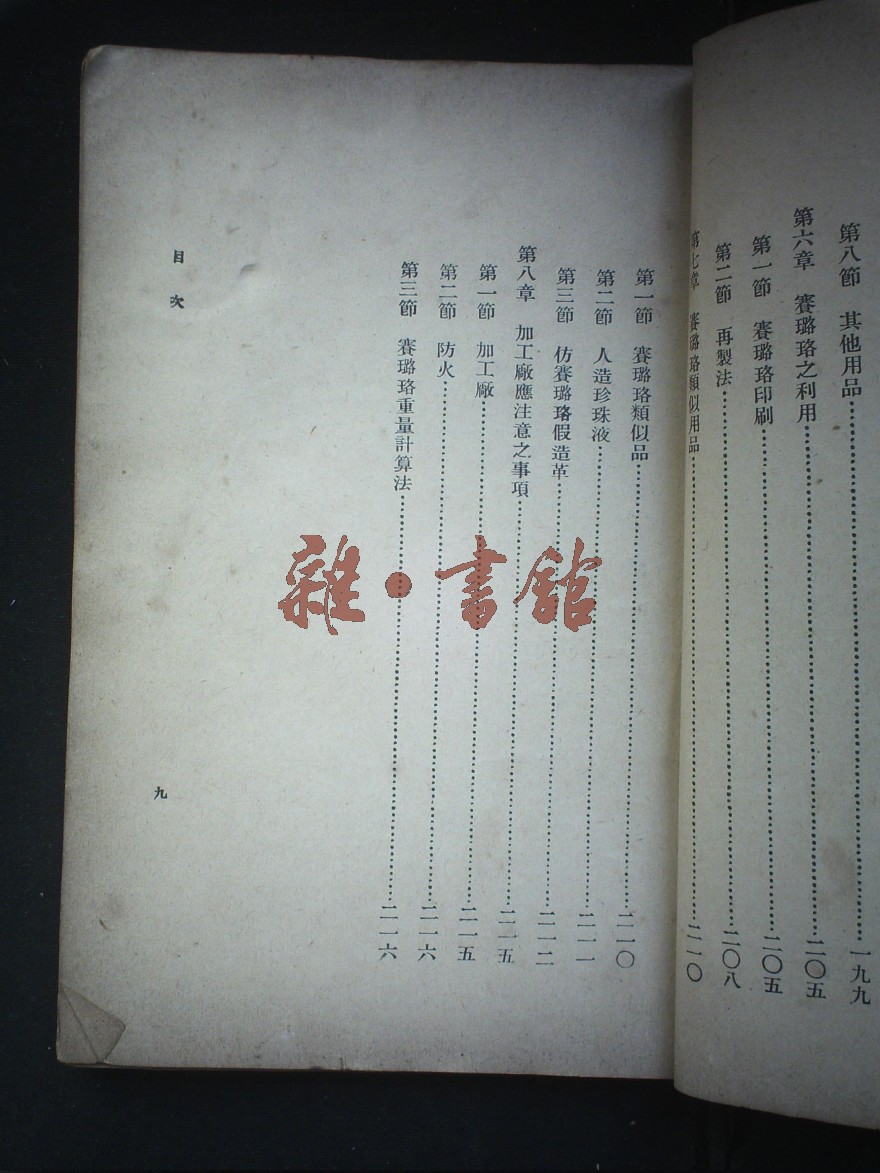 第八節　其他用品………一九九
第六章　賽璐珞之利用………二〇五
第一節　賽璐珞印刷………二〇五
第二節　再製法………二〇八
第七章　賽璐珞類似用品………二一〇
第一節　賽璐珞類似品………二一〇
第二節　人造珍珠液………二一一
第三節　仿賽璐珞假造革………二一二
第八章　加工廠應注意之事項………二一五
第一節　加工廠………二一五
第二節　防火………二一六
第三節　賽璐珞重量計算法………二一六
目次
九
雜·書館